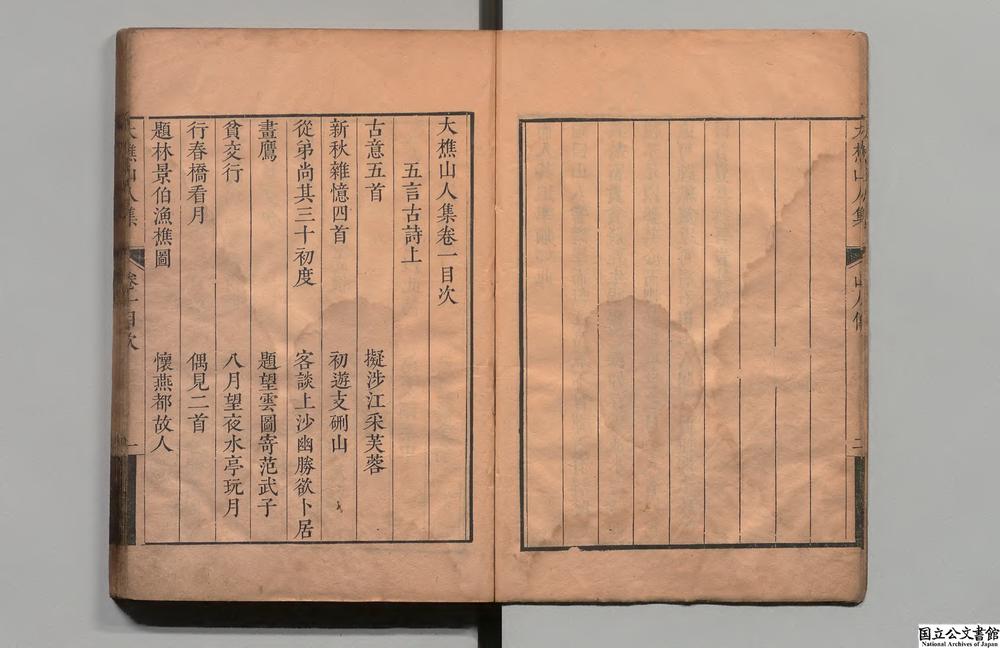 大樵山人集
山人傳
二
大樵山人集卷一目次
五言古詩上
古意五首
擬涉江采芙蓉
新秋雜憶四首
初遊支硎山
從弟尚其三十初度
客談上沙幽勝欲卜居
畫鷹
題望雲圖寄范武子
貧交行
八月望夜水亭玩月
行春橋看月
偶見二首
題林景伯漁樵圖
懷燕都故人
大樵山人集
卷一目次
一
国立公文書館
National Archives of Japan